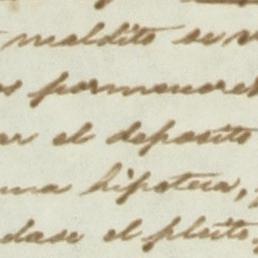 maldito se v
s pormenores
ar el deposito
una hipoteca,
dase el pleito,